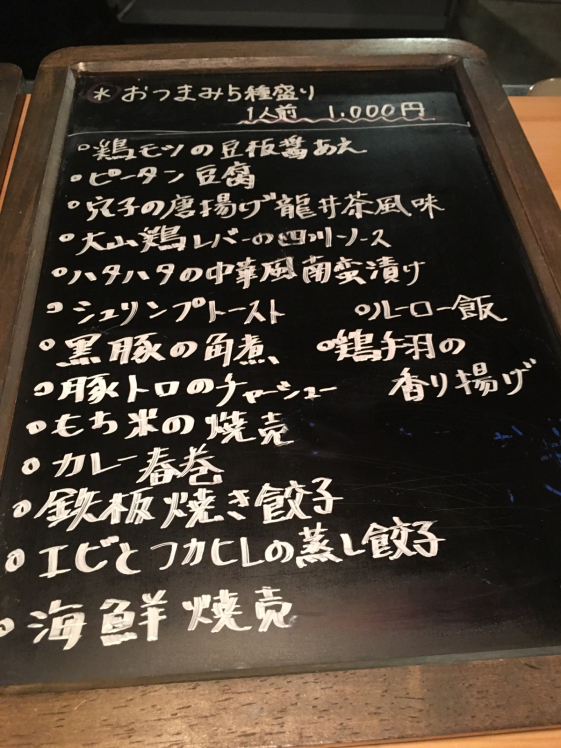 ＊おつまみ5種盛り
1人前 1,000円
○鶏モツの豆板醤あえ
○ピータン豆腐
○穴子の唐揚げ龍井茶風味
○大山鶏レバーの四川ソース
○ハタハタの中華風南蛮漬け
○シュリンプトースト ○ルーロー飯
○黒豚の角煮 ○鶏手羽の
○豚トロのチャーシュー 香り揚げ
○もち米の焼売
○カレー春巻
○鉄板焼き餃子
○エビとフカヒレの蒸し餃子
○海鮮焼売